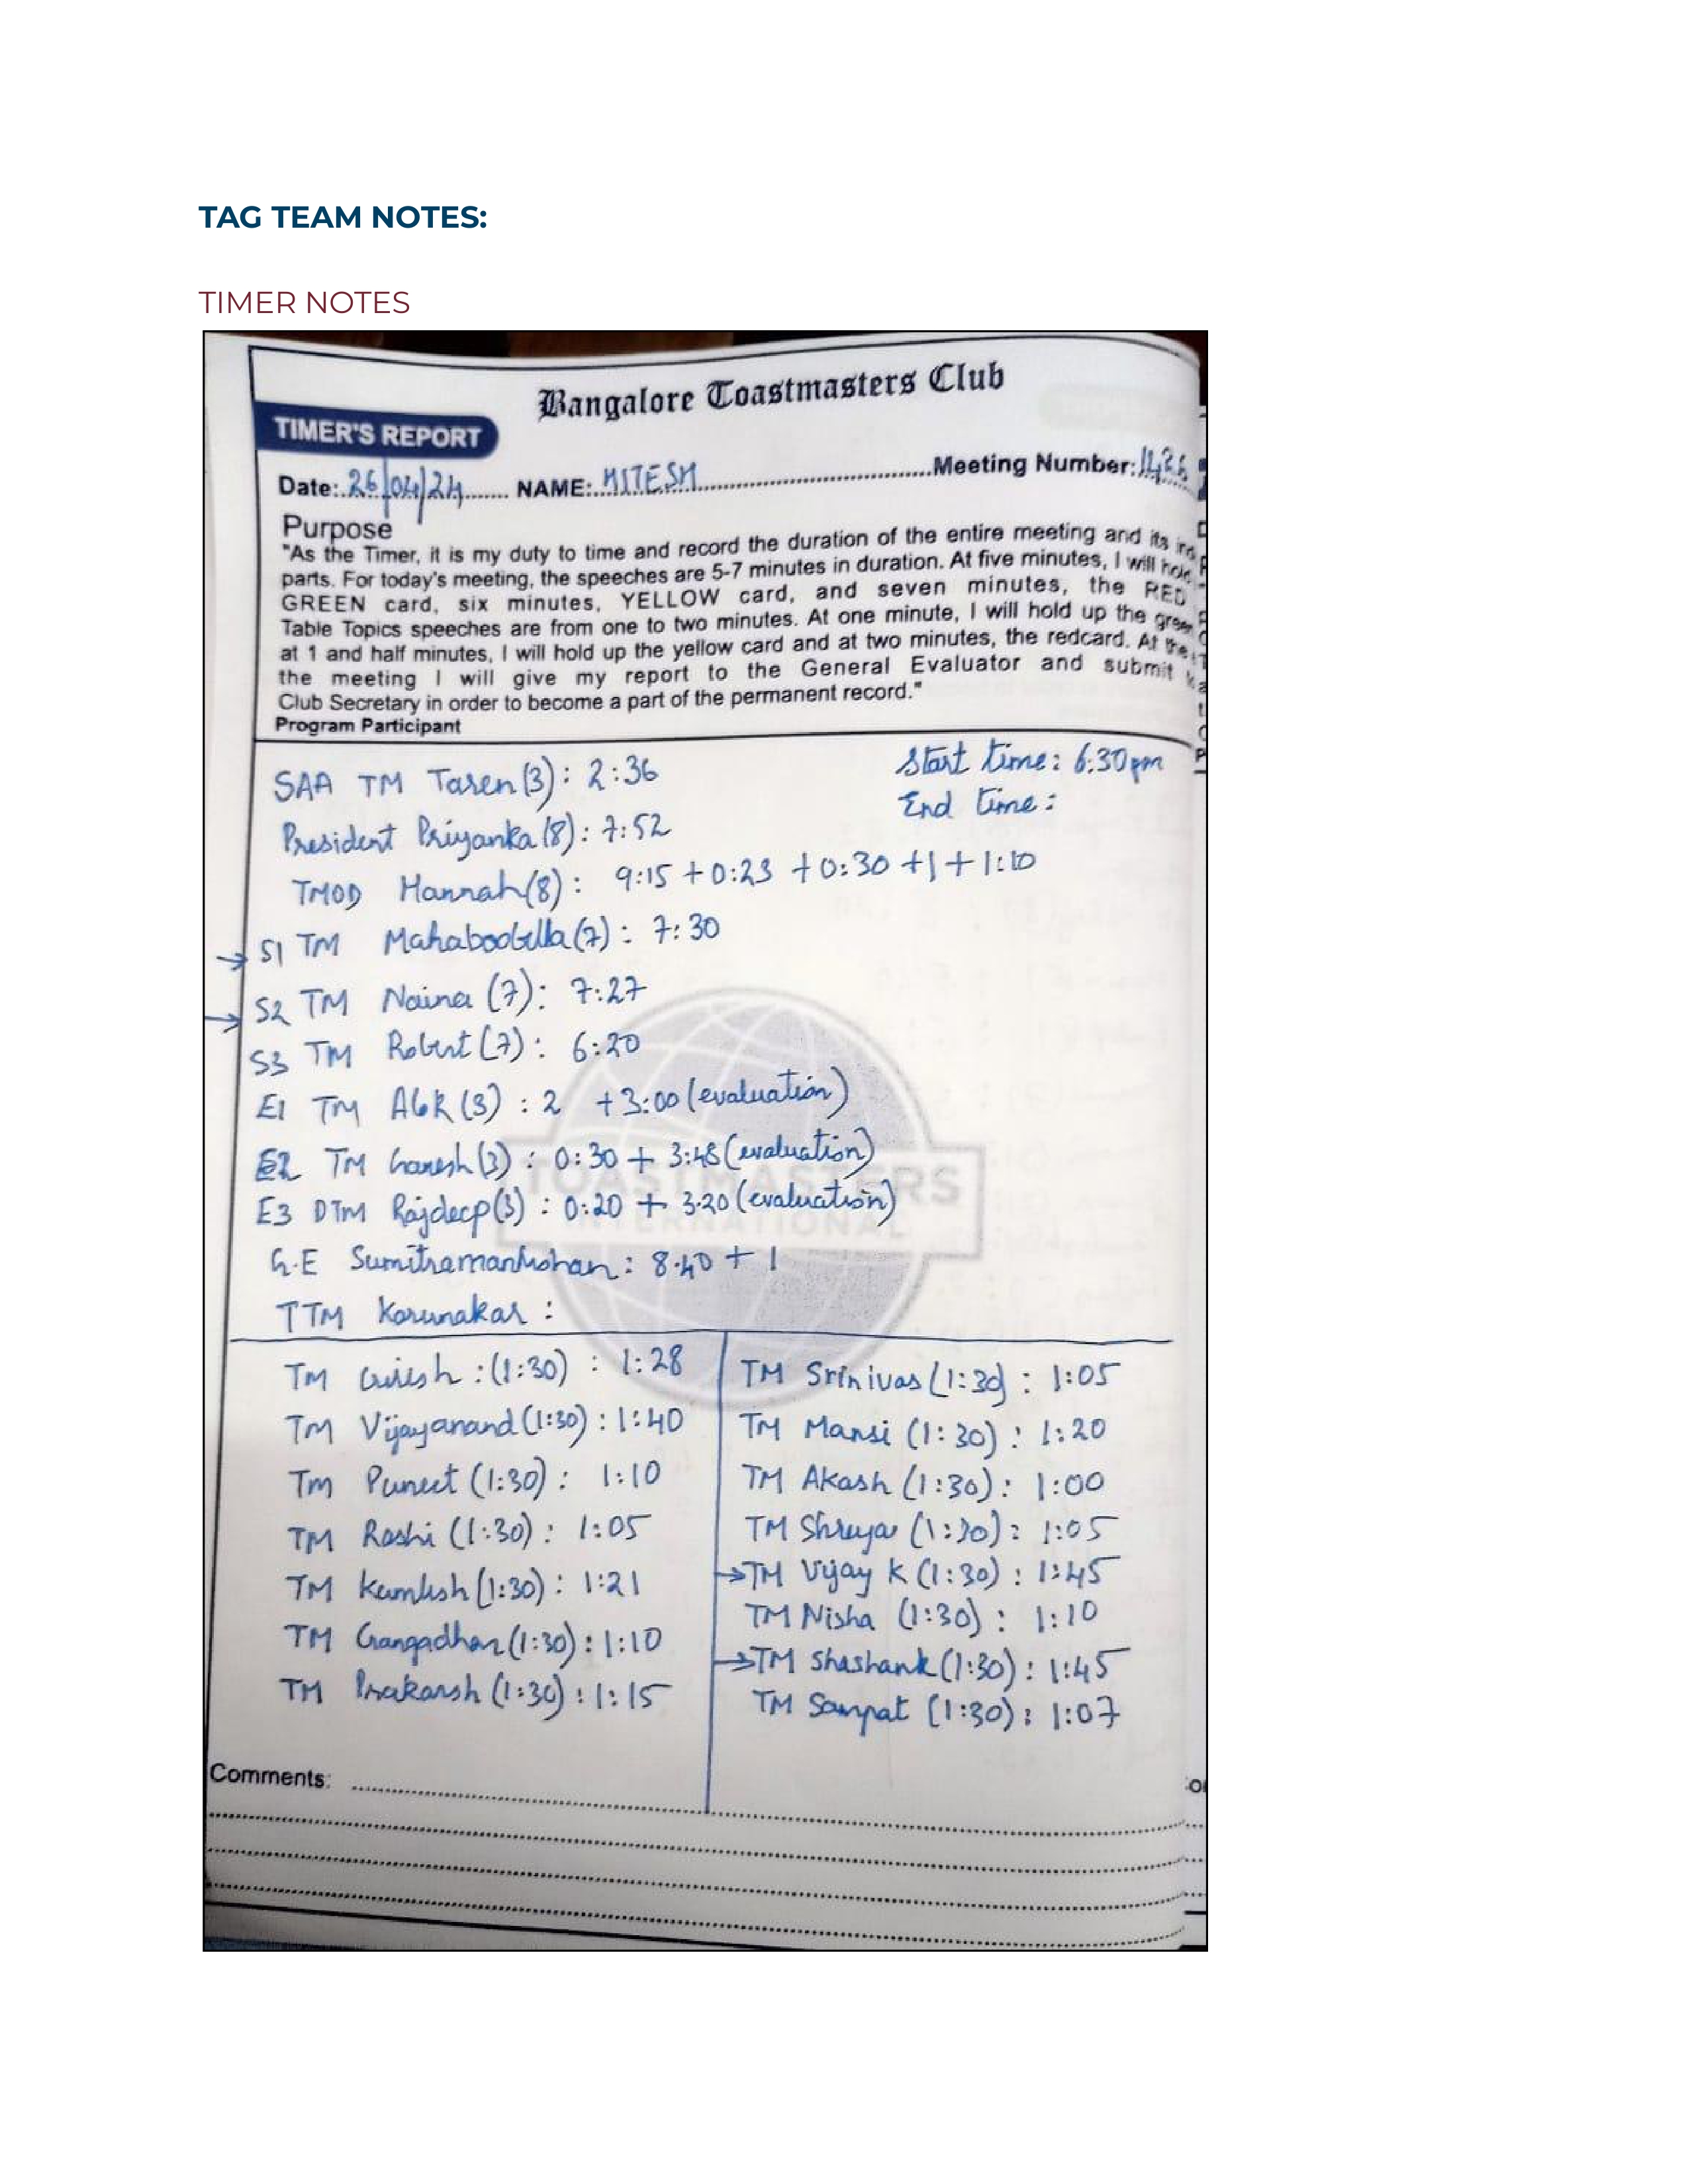 TAG TEAM NOTES:
TIMER NOTES
Bangalore Toastmasters Club
TIMER'S REPORT
Date: 26/04/24 NAME: HITESH Meeting Number: 1426
Purpose
"As the Timer, it is my duty to time and record the duration of the entire meeting and its
parts. For today's meeting, the speeches are 5-7 minutes in duration. At five minutes, I will hold
GREEN card, six minutes, YELLOW card, and seven minutes, the RED
Table Topics speeches are from one to two minutes. At one minute, I will hold up the green
at 1 and half minutes, I will hold up the yellow card and at two minutes, the redcard. At the
the meeting I will give my report to the General Evaluator and submit
Club Secretary in order to become a part of the permanent record."
Program Participant
Start time: 6:30pm
End time:
SAA TM Taren (3): 2:36
President Priyanka (8): 7:52
TMOD Hannah (8): 9:15 + 0:23 + 0:30 + 1 + 1:10
→ S1 TM (7): 7:30
→ S2 TM Naina (7): 7:27
S3 TM Robert (7): 6:20
E1 TM (3): 2 + 3:00 (evaluation)
E2 TM Ganesh (3): 0:30 + 3:48 (evaluation)
E3 DTM Rajdeep (3): 0:20 + 3:20 (evaluation)
G.E : 8:40 + 1
TTM Karunakar:
TM Girish: (1:30): 1:28
TM Vijayanand (1:30): 1:40
TM Puneet (1:30): 1:10
TM Rashi (1:30): 1:05
TM Kamlesh (1:30): 1:21
TM Gangadhar (1:30): 1:10
TM Prakarsh (1:30): 1:15
TM Srinivas (1:30): 1:05
TM Mansi (1:30): 1:20
TM Akash (1:30): 1:00
TM Shreya (1:30): 1:05
→TM Vijay K (1:30): 1:45
TM Nisha (1:30): 1:10
→TM Shashank (1:30): 1:45
TM Sampat (1:30): 1:07
Comments:
TOASTMASTERS
INTERNATIONAL